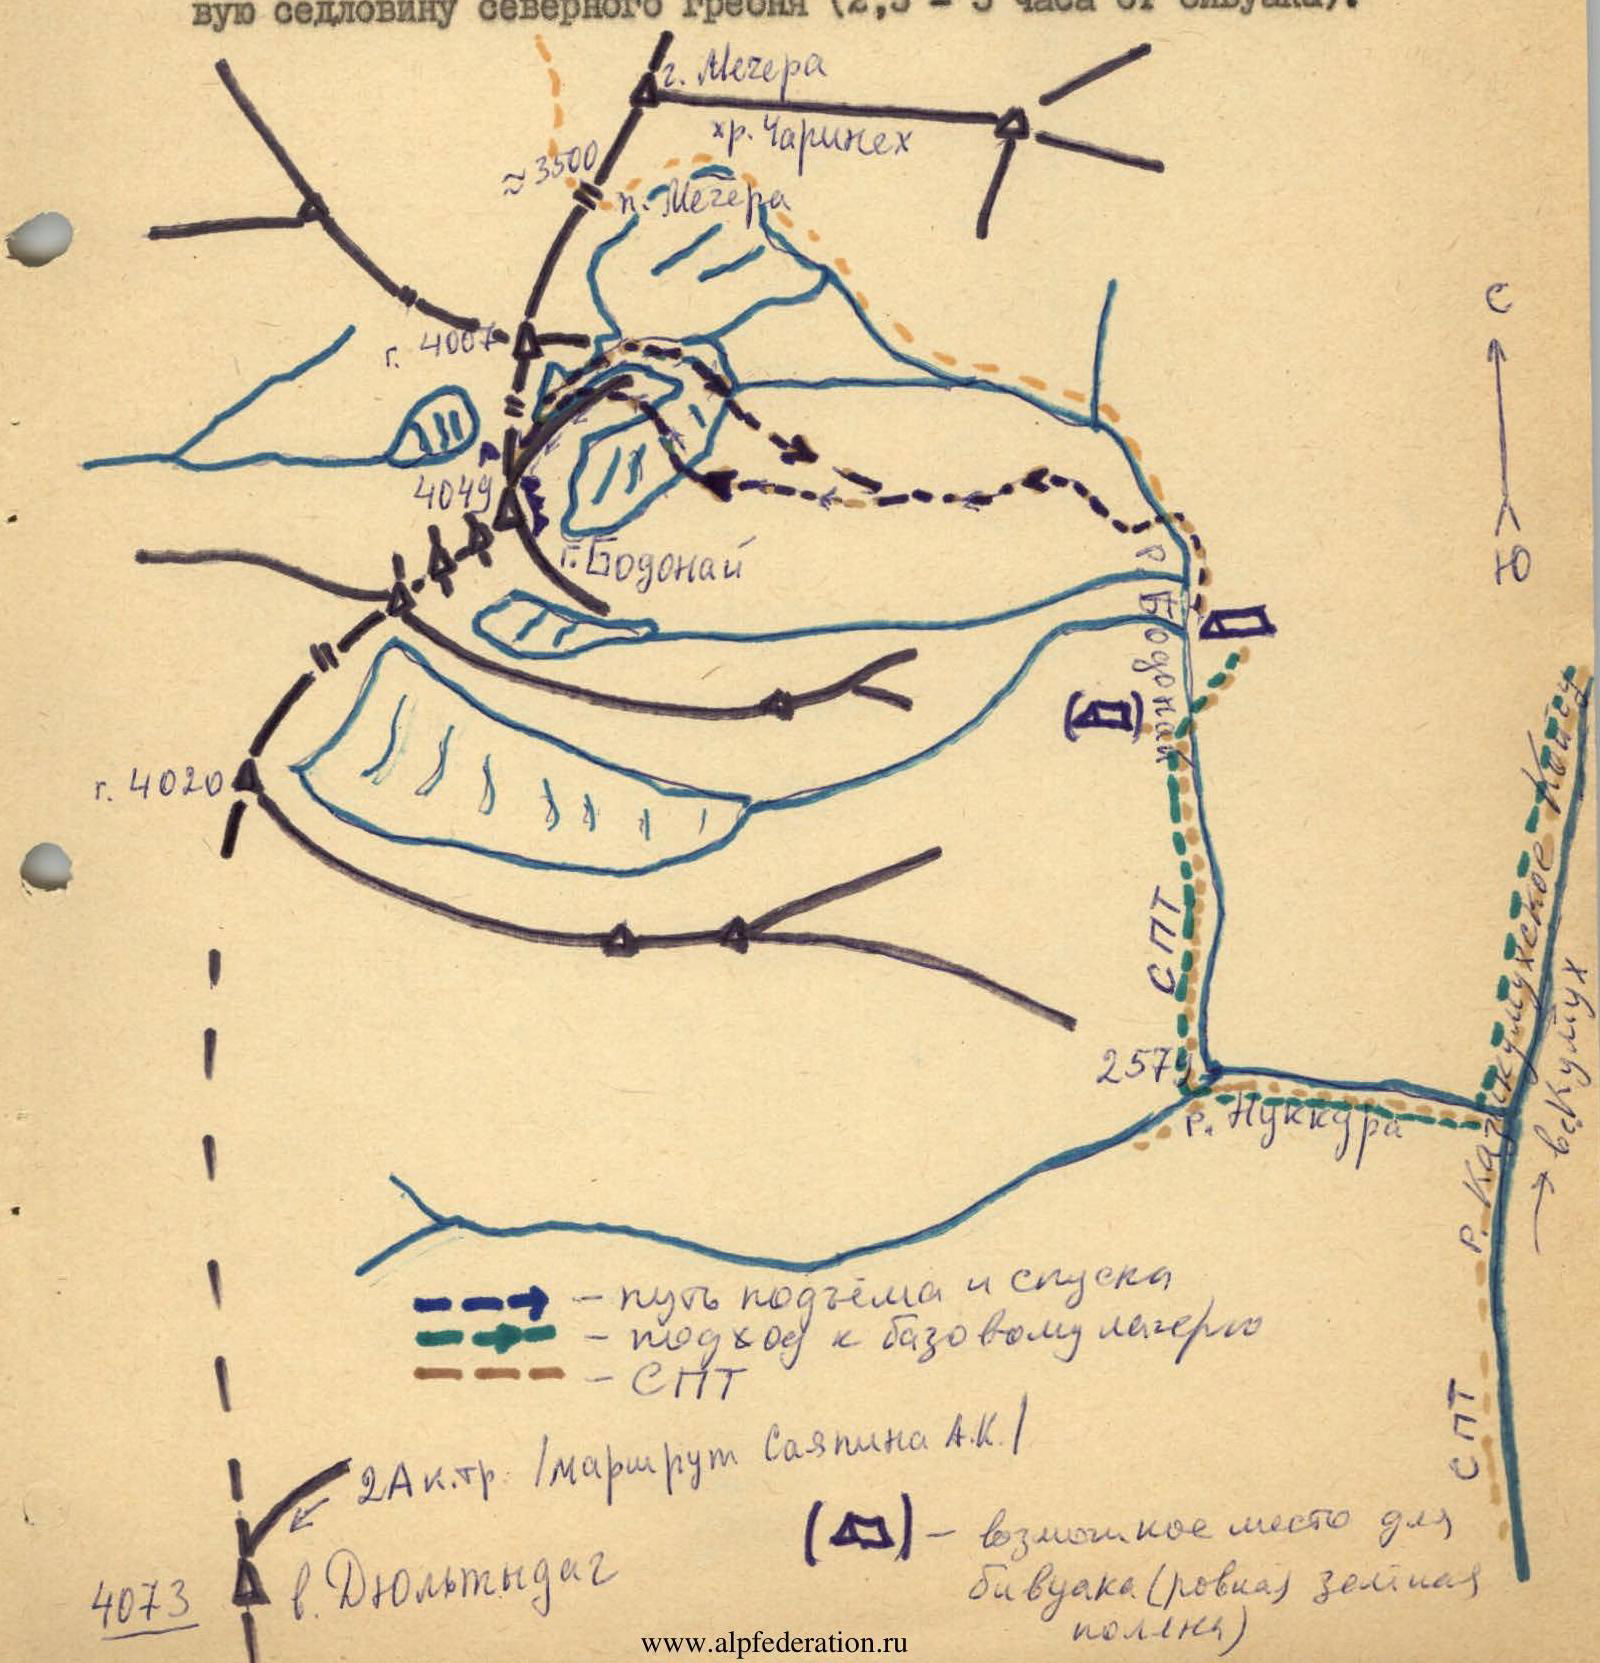 вую седловину северного гребня (2,5 - 3 часа от бивуака).
г. Мечера
хр. Чаринех
≈ 3500
п. Мечера
г. 4007
С
4049
г. Бодонай
Ю
р. Бодонай
г. 4020
СПТ
2579
р. Нуккура
р. Казикумухское Койсу
→ в с. Кумух
– путь подъёма и спуска
– подход к базовому лагерю
– СПТ
СПТ
2А к.тр. /маршрут Саяпина А.К./
( ) – возможное место для
бивуака (ровная зелёная
поляна)
4073 в. Дюльтыдаг
www.alpfederation.ru